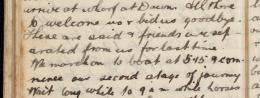 arrive at wharf at Dawn. All there
to welcome us & bid us goodbye.
There are said & friends are sep-
arated from us for last time.
We march on to boat at 5.45 & com-
mence our second stage of journey
Wait long while to 9 am while horses